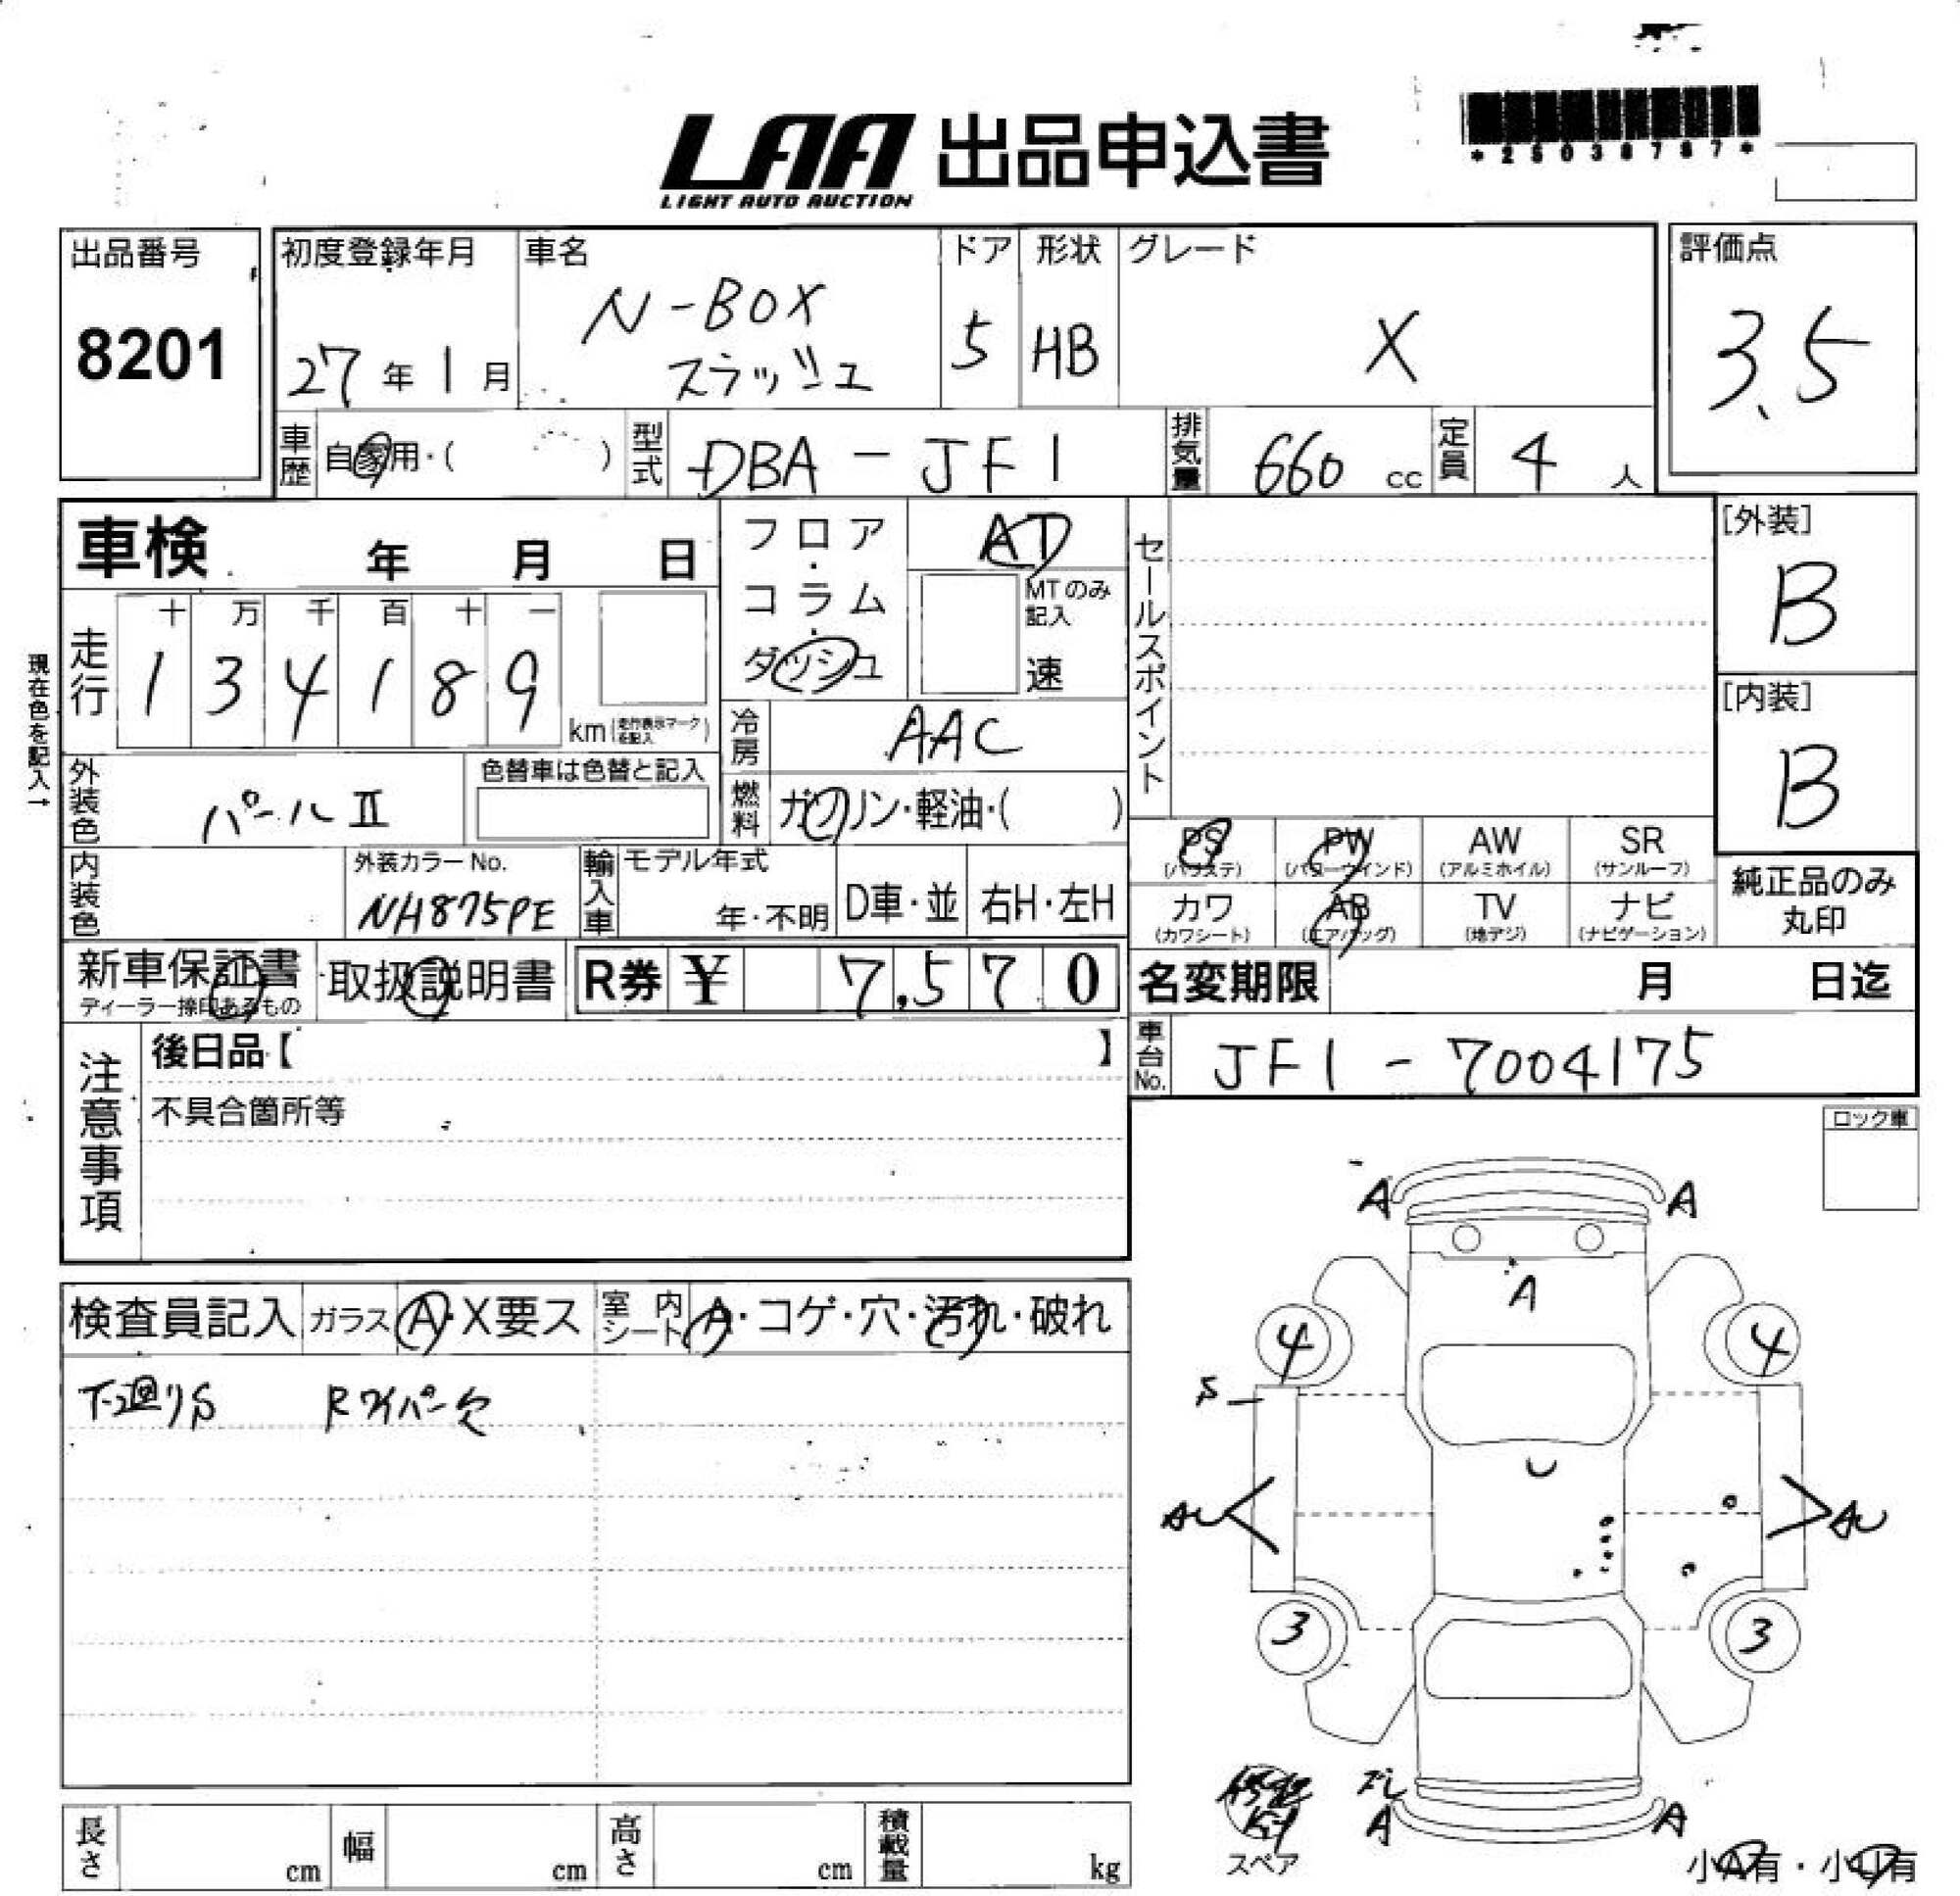 LAA 出品申込書
LIGHT AUTO AUCTION
*25038787*
出品番号
8201
初度登録年月
27年1月
車名
N-BOX
スラッシュ
ドア
5
形状
HB
グレード
X
評価点
3.5
車歴
自家用・( )
型式
DBA-JF1
排気量
660 cc
定員
4 人
車検 年 月 日
フロア・コラム・ダッシュ
AT
MTのみ記入
速
セールスポイント
[外装]
B
[内装]
B
現在色を記入→
走行
十 万 千 百 十 一
1 3 4 1 8 9
km(走行表示マークを記入)
冷房
AAC
外装色
パールII
色替車は色替と記入
燃料
ガソリン・軽油・( )
内装色
外装カラーNo.
NH875PE
輸入車
モデル年式
年・不明
D車・並
右H・左H
PS
(パワステ)
PW
(パワーウインド)
AW
(アルミホイル)
SR
(サンルーフ)
カワ
(カワシート)
AB
(エアバッグ)
TV
(地デジ)
ナビ
(ナビゲーション)
純正品のみ
丸印
新車保証書
ディーラー捺印あるもの
取扱説明書
R券 ¥ 7,570
名変期限 月 日迄
車台No.
JF1-7004175
注意事項
後日品【 】
不具合箇所等
ロック車
検査員記入
ガラス
A・X要ス
室内シート
A・コゲ・穴・汚れ・破れ
下廻りS
Rワイパー欠
A A
A
4 4
S
U
AU AU
3 3
A A
スペア
小A有・小U有
長さ cm
幅 cm
高さ cm
積載量 kg